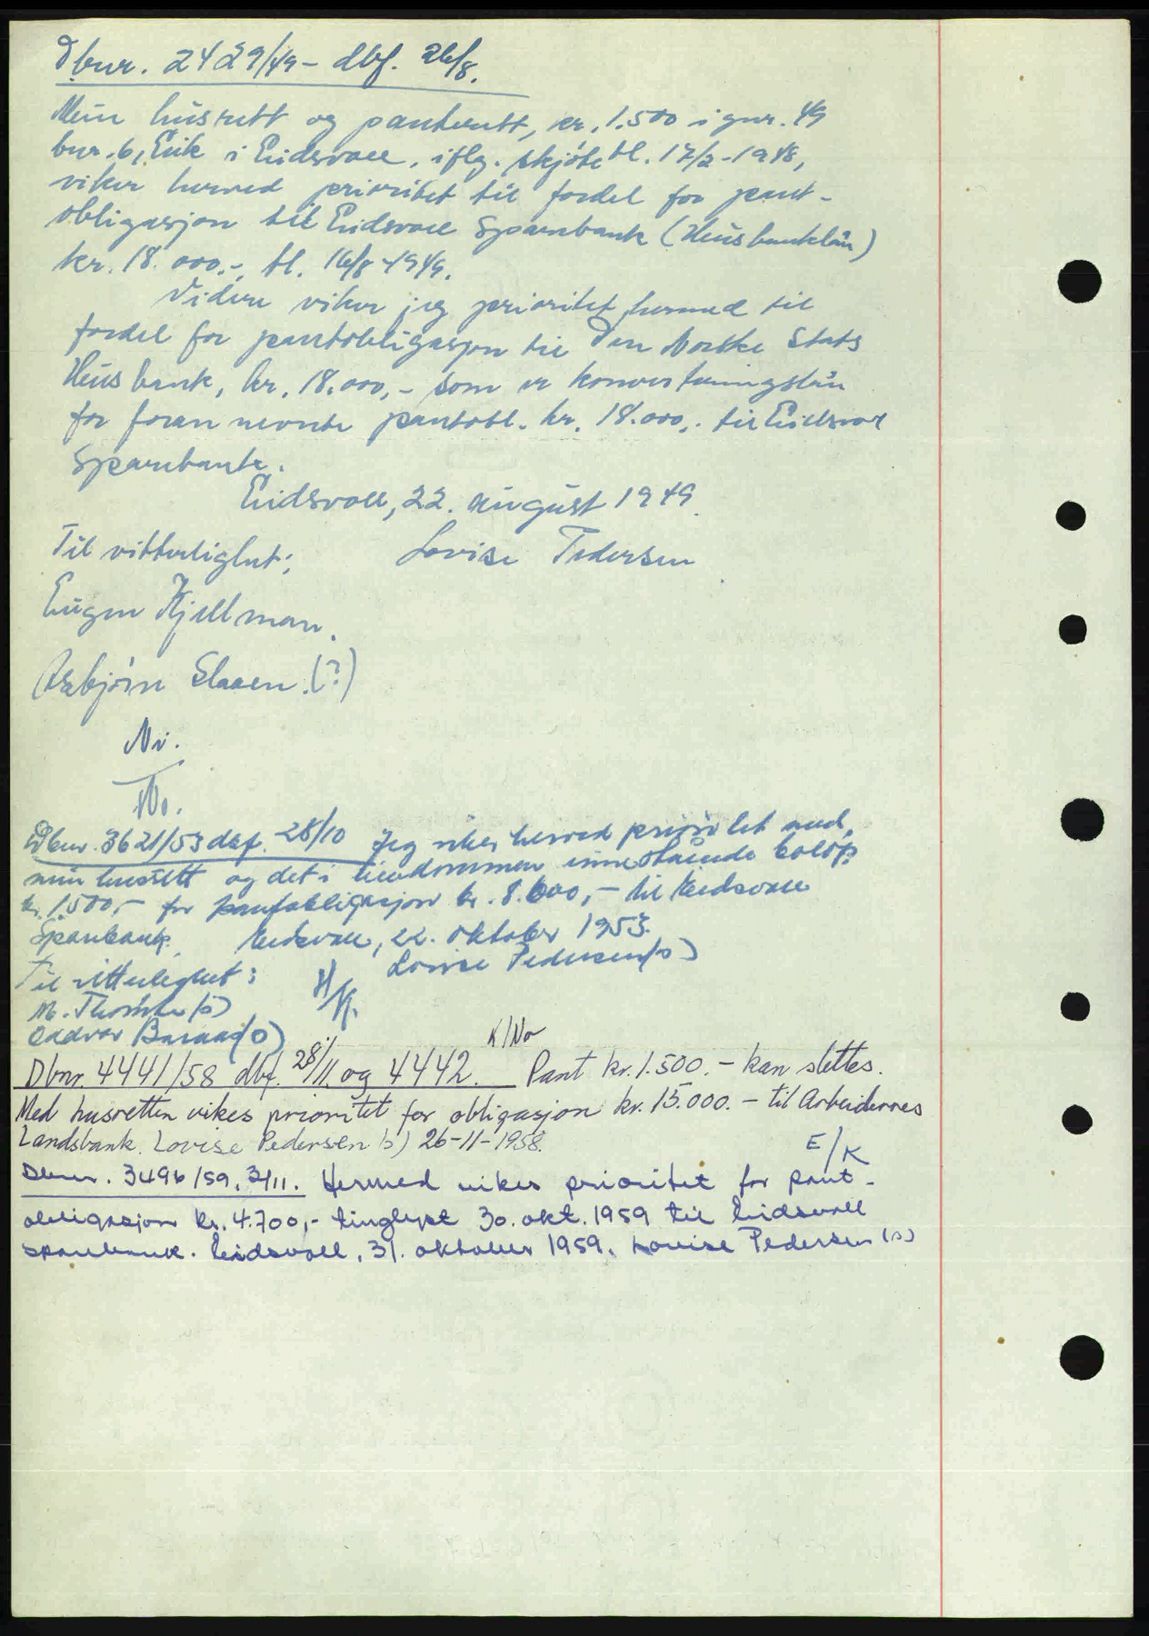 Dbnr. 2429/49 - dbf. 26/8.
Min husrett og panterett, kr. 1.500 i gnr. 49
bnr. 6, Eik i Eidsvoll, iflg. skjøte tl. 17/2-1948,
viker herved prioritet til fordel for pant-
obligasjon til Eidsvoll Sparebank (Husbanklån)
kr. 18.000,-, tl. 16/8-1949.
Videre viker jeg prioritet herved til
fordel for pantobligasjon til Den Norske Stats
Husbank, kr. 18.000,- som er konverteringslån
for foran nevnte pantobl. kr. 18.000,- til Eidsvoll
Sparebank.
Eidsvoll, 22. august 1949.
Til vitterlighet; Lovise Pedersen
Eugen Kjellman.
Asbjørn Slaaen.(?)
Ni.
No.
Dbnr. 3621/53 dbf. 28/10 Jeg viker herved prioritet med
min husrett og det i eiendommen innestående beløp
kr. 1500,- for pantobligasjon kr. 8.600,- til Eidsvoll
Sparebank. Eidsvoll, 22. oktober 1953.
Til vitterlighet: Lovise Pedersen (s)
M. (s)
Oddvar (s)
K/No
Dbnr. 4441/58 dbf. 28/11. og 4442. Pant kr. 1.500.- kan slettes.
Med husretten vikes prioritet for obligasjon kr. 15.000.- til Arbeidernes
Landsbank. Lovise Pedersen (s) 26-11-1958.
E/K
Dbnr. 3496/59, 3/11. Herved vikes prioritet for pant-
obligasjon kr. 4.700,- tinglyst 30. okt. 1959 til Eidsvoll
sparebank. Eidsvoll, 31. oktober 1959. Lovise Pedersen (s)